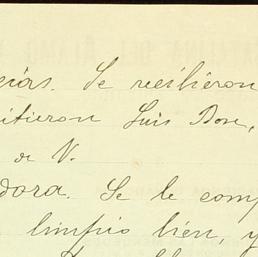 cias. Se recibieron
itieron Luis Bore,
de V.
dora. Se le comp
limpio bien, y